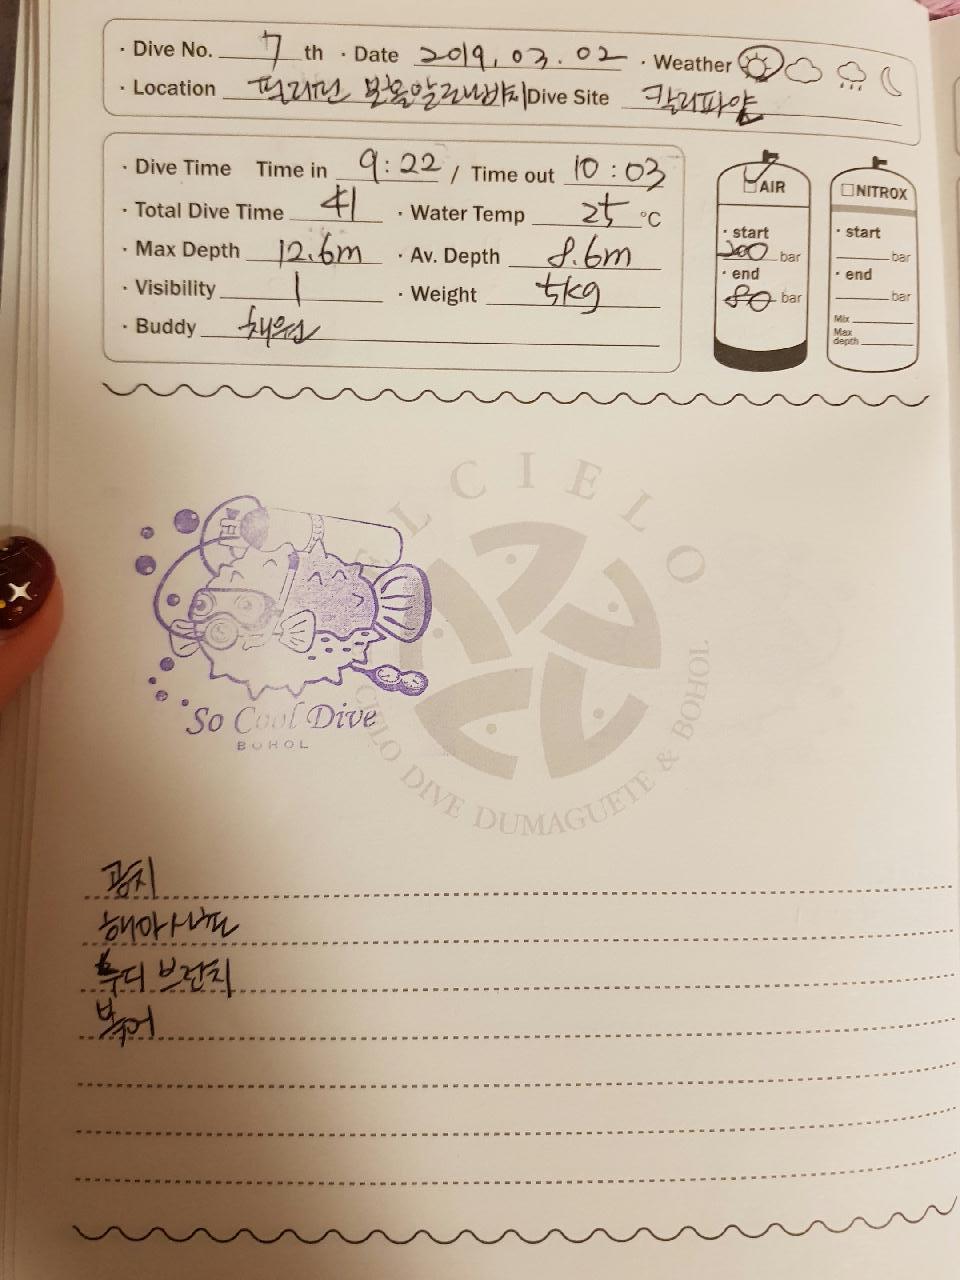 · Dive No. 7 th · Date 2019. 03. 02 · Weather
· Location 필리핀 보홀알로나비치 Dive Site 칼리파얀
· Dive Time Time in 9:22 / Time out 10:03
· Total Dive Time 41 · Water Temp 25 °C
· Max Depth 12.6m · Av. Depth 8.6m
· Visibility 1 · Weight 5kg
· Buddy
AIR
· start
200 bar
· end
80 bar
NITROX
· start
bar
· end
bar
Mix
Max depth
EL CIELO
CIELO DIVE DUMAGUETE & BOHOL
So Cool Dive
BOHOL
꽁치
해마사냥
우디 브런치
복어